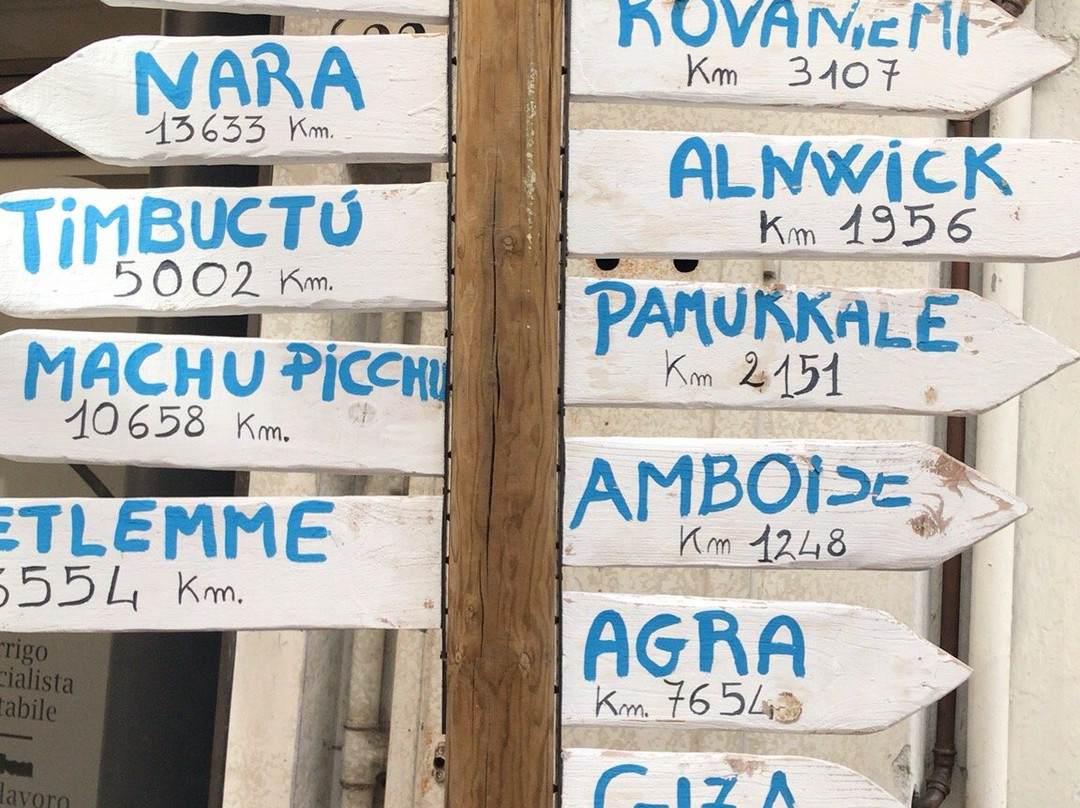 NARA
13633 Km.
TiMBUCTÚ
5002 Km.
MACHU PiCCHU
10658 Km.
ETLEMME
3554 Km.
rrigo
cialista
tabile
lavoro
ROVANiEMI
Km 3107
ALNWiCK
Km 1956
PAMUKKALE
Km 2151
AMBOISE
Km 1248
AGRA
Km. 7654
GIZA